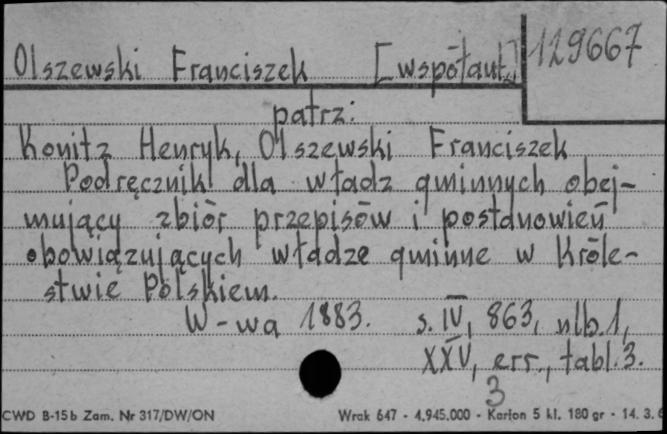 Olszewski Franciszek [współaut.] 129667
patrz:
Konitz Henryk, Olszewski Franciszek
Podręcznik dla władz gminnych obej-
mujący zbiór przepisów i postanowień
obowiązujących władze gminne w Króle-
stwie Polskiem.
W-wa 1883. s. IV, 863, nlb. 1,
XXV, err., tabl. 3.
3
CWD B-15b Zam. Nr 317/DW/ON Wrak 647 - 4.945.000 - Karton 5 kl. 180 gr - 14. 3.